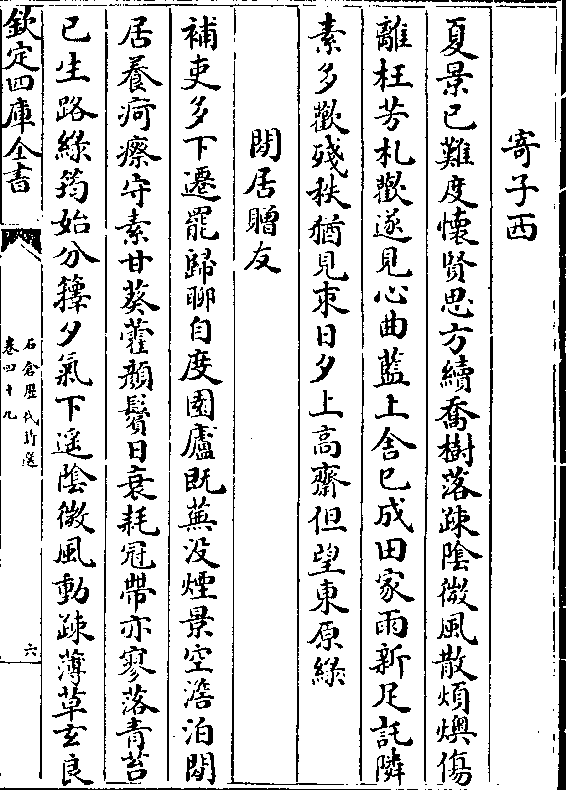 寄子西
夏景已難度懷賢思方續喬樹落疎陰微風散煩燠傷
離枉芳札歡遂見心曲藍上舍已成田家雨新足託隣
素多歡殘秩猶見束日夕上高齋但望東原綠
閒居贈友
補吏多下遷罷歸聊自度園廬既蕪没煙景空澹泊閒
居養疴瘵守素甘葵藿顔鬢日衰耗冠帶亦寥落青苔
已生路綠筠始分籜夕氣下遥陰微風動疎薄草玄良
欽定四庫全書
石倉歷代詩選
卷四十九
六